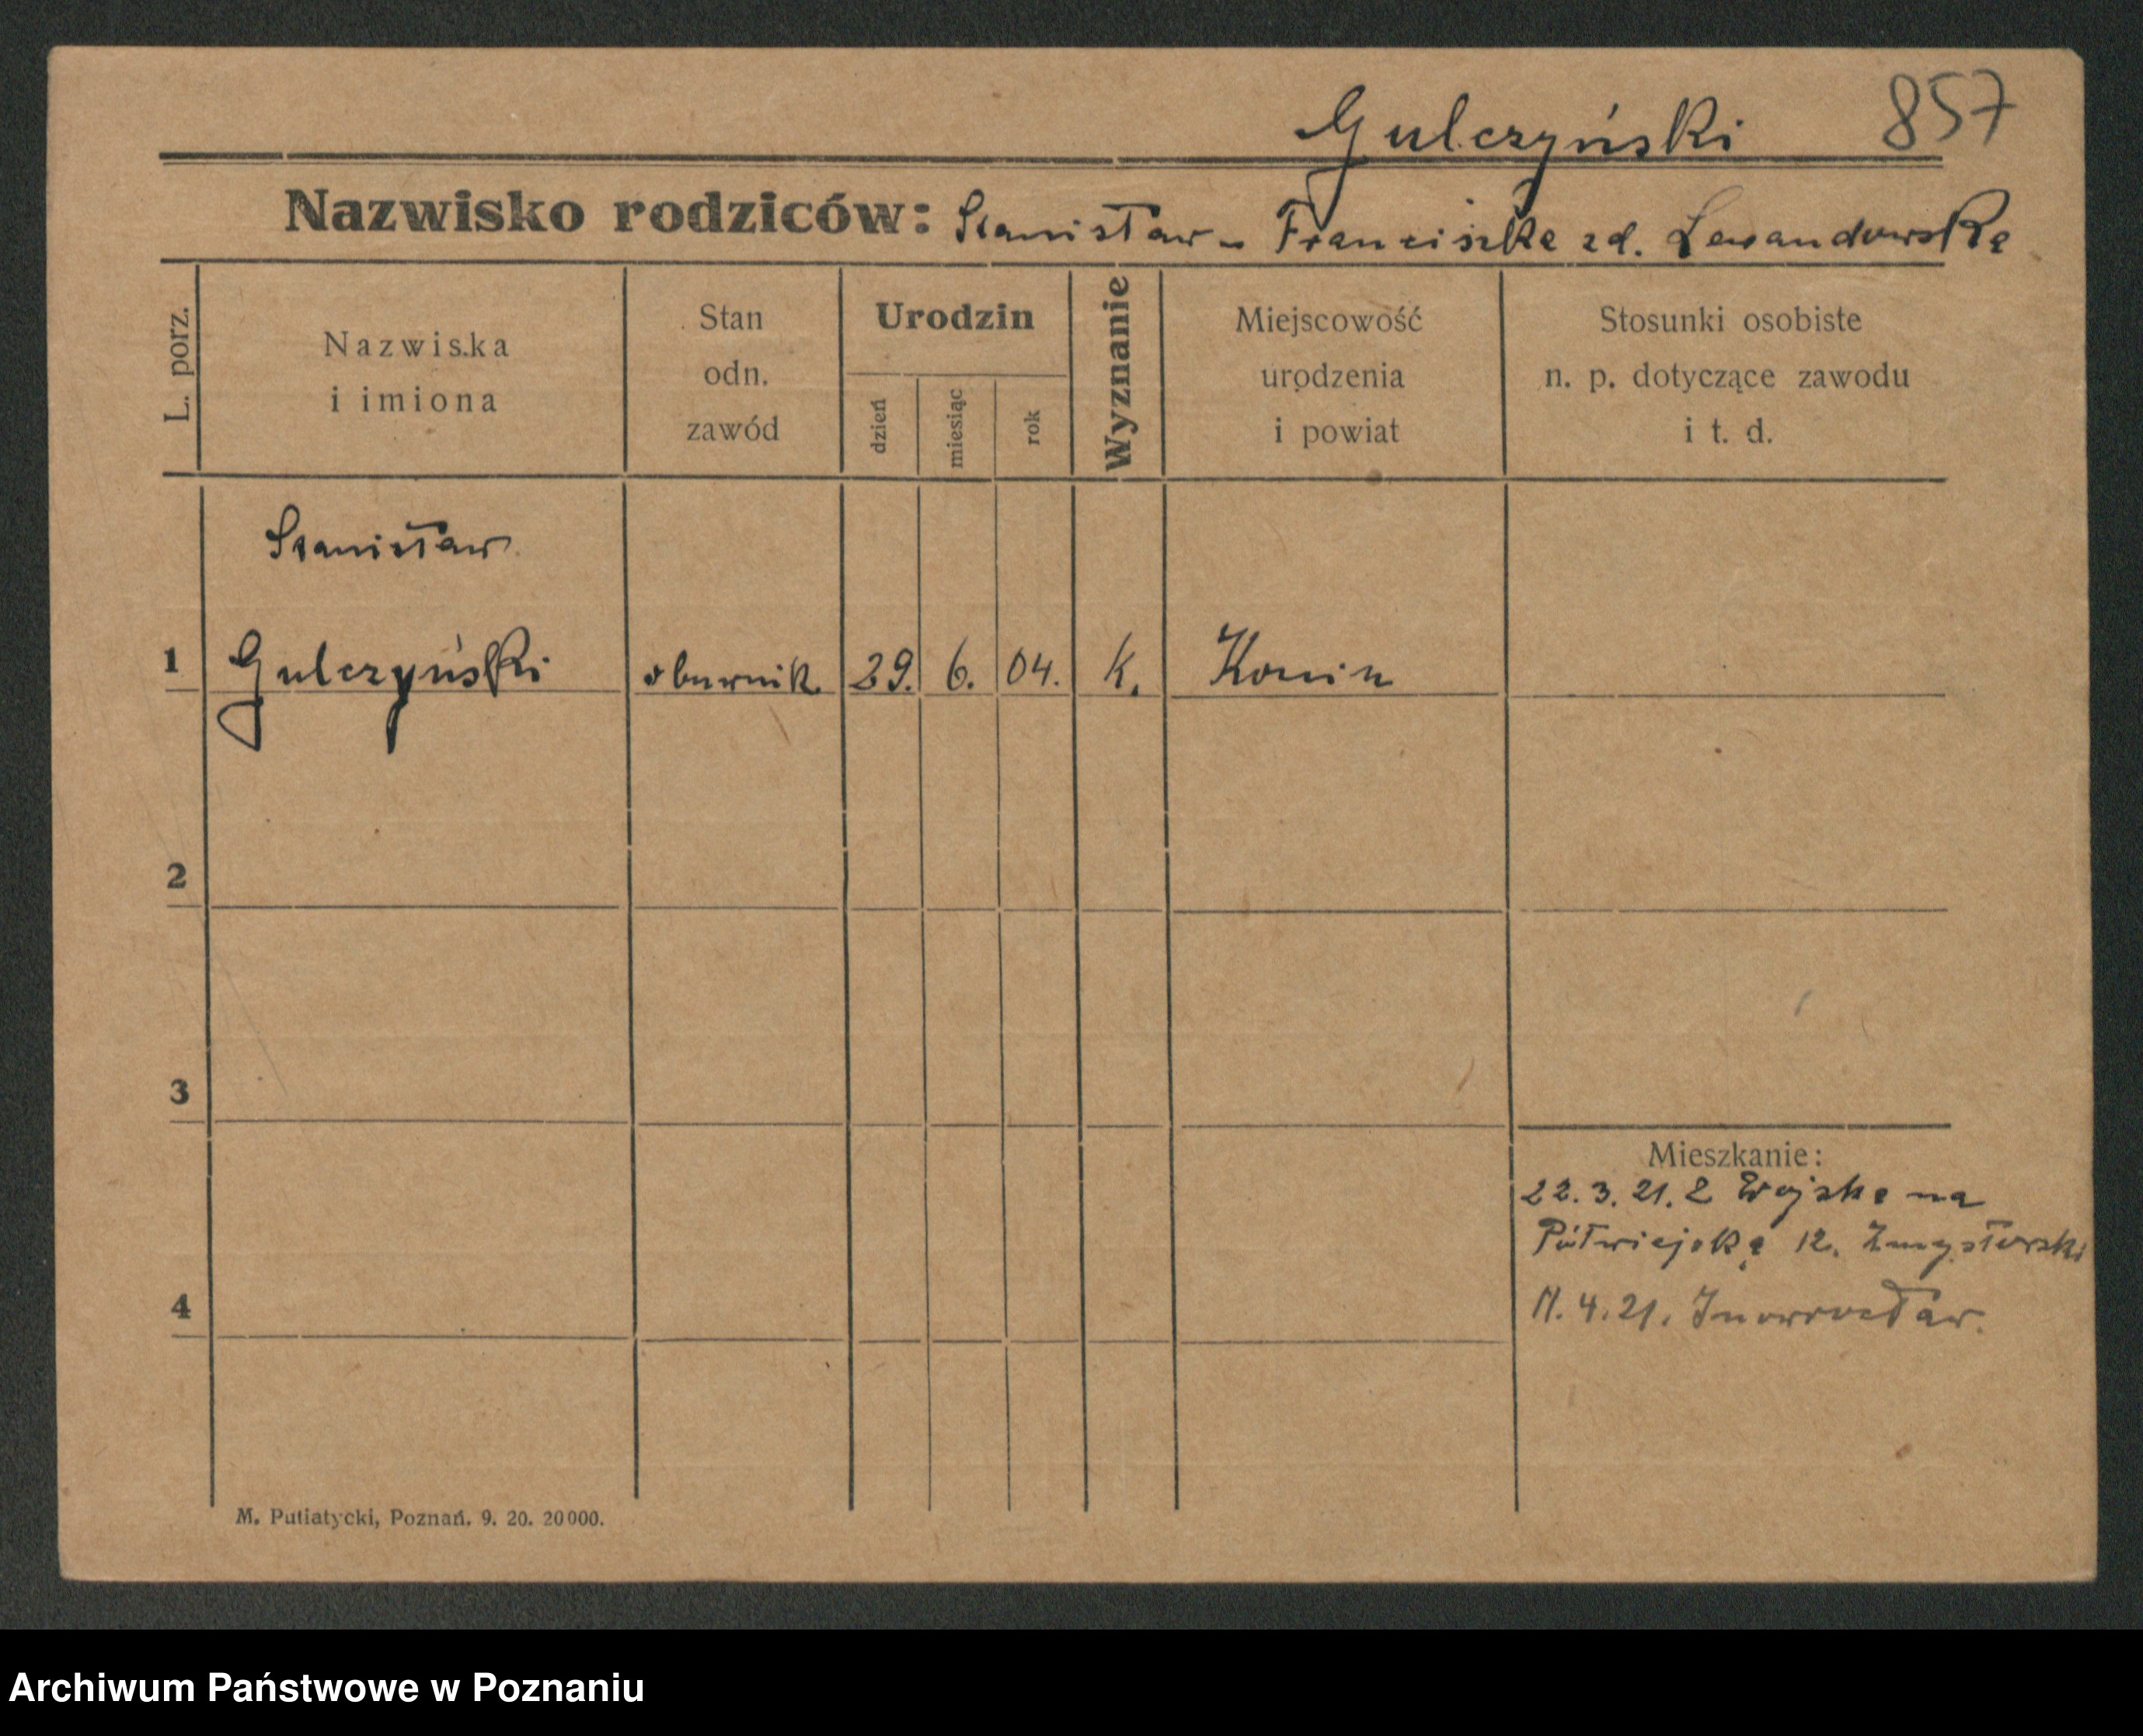 Gulczyński 857
Nazwisko rodziców: Stanisław - Franciszka zd. Lewandowska
L. porz.
Nazwiska
i imiona
Stan
odn.
zawód
Urodzin
dzień
miesiąc
rok
Wyznanie
Miejscowość
urodzenia
i powiat
Stosunki osobiste
n. p. dotyczące zawodu
i t. d.
Stanisław
1 Gulczyński obuwnik 29. 6. 04. K. Konin
2
3
Mieszkanie:
22.3.21. Z Wojska na
Półwiejską 12.
4
11.4.21. Inowrocław.
M. Putiatycki, Poznań. 9. 20. 20000.
Archiwum Państwowe w Poznaniu